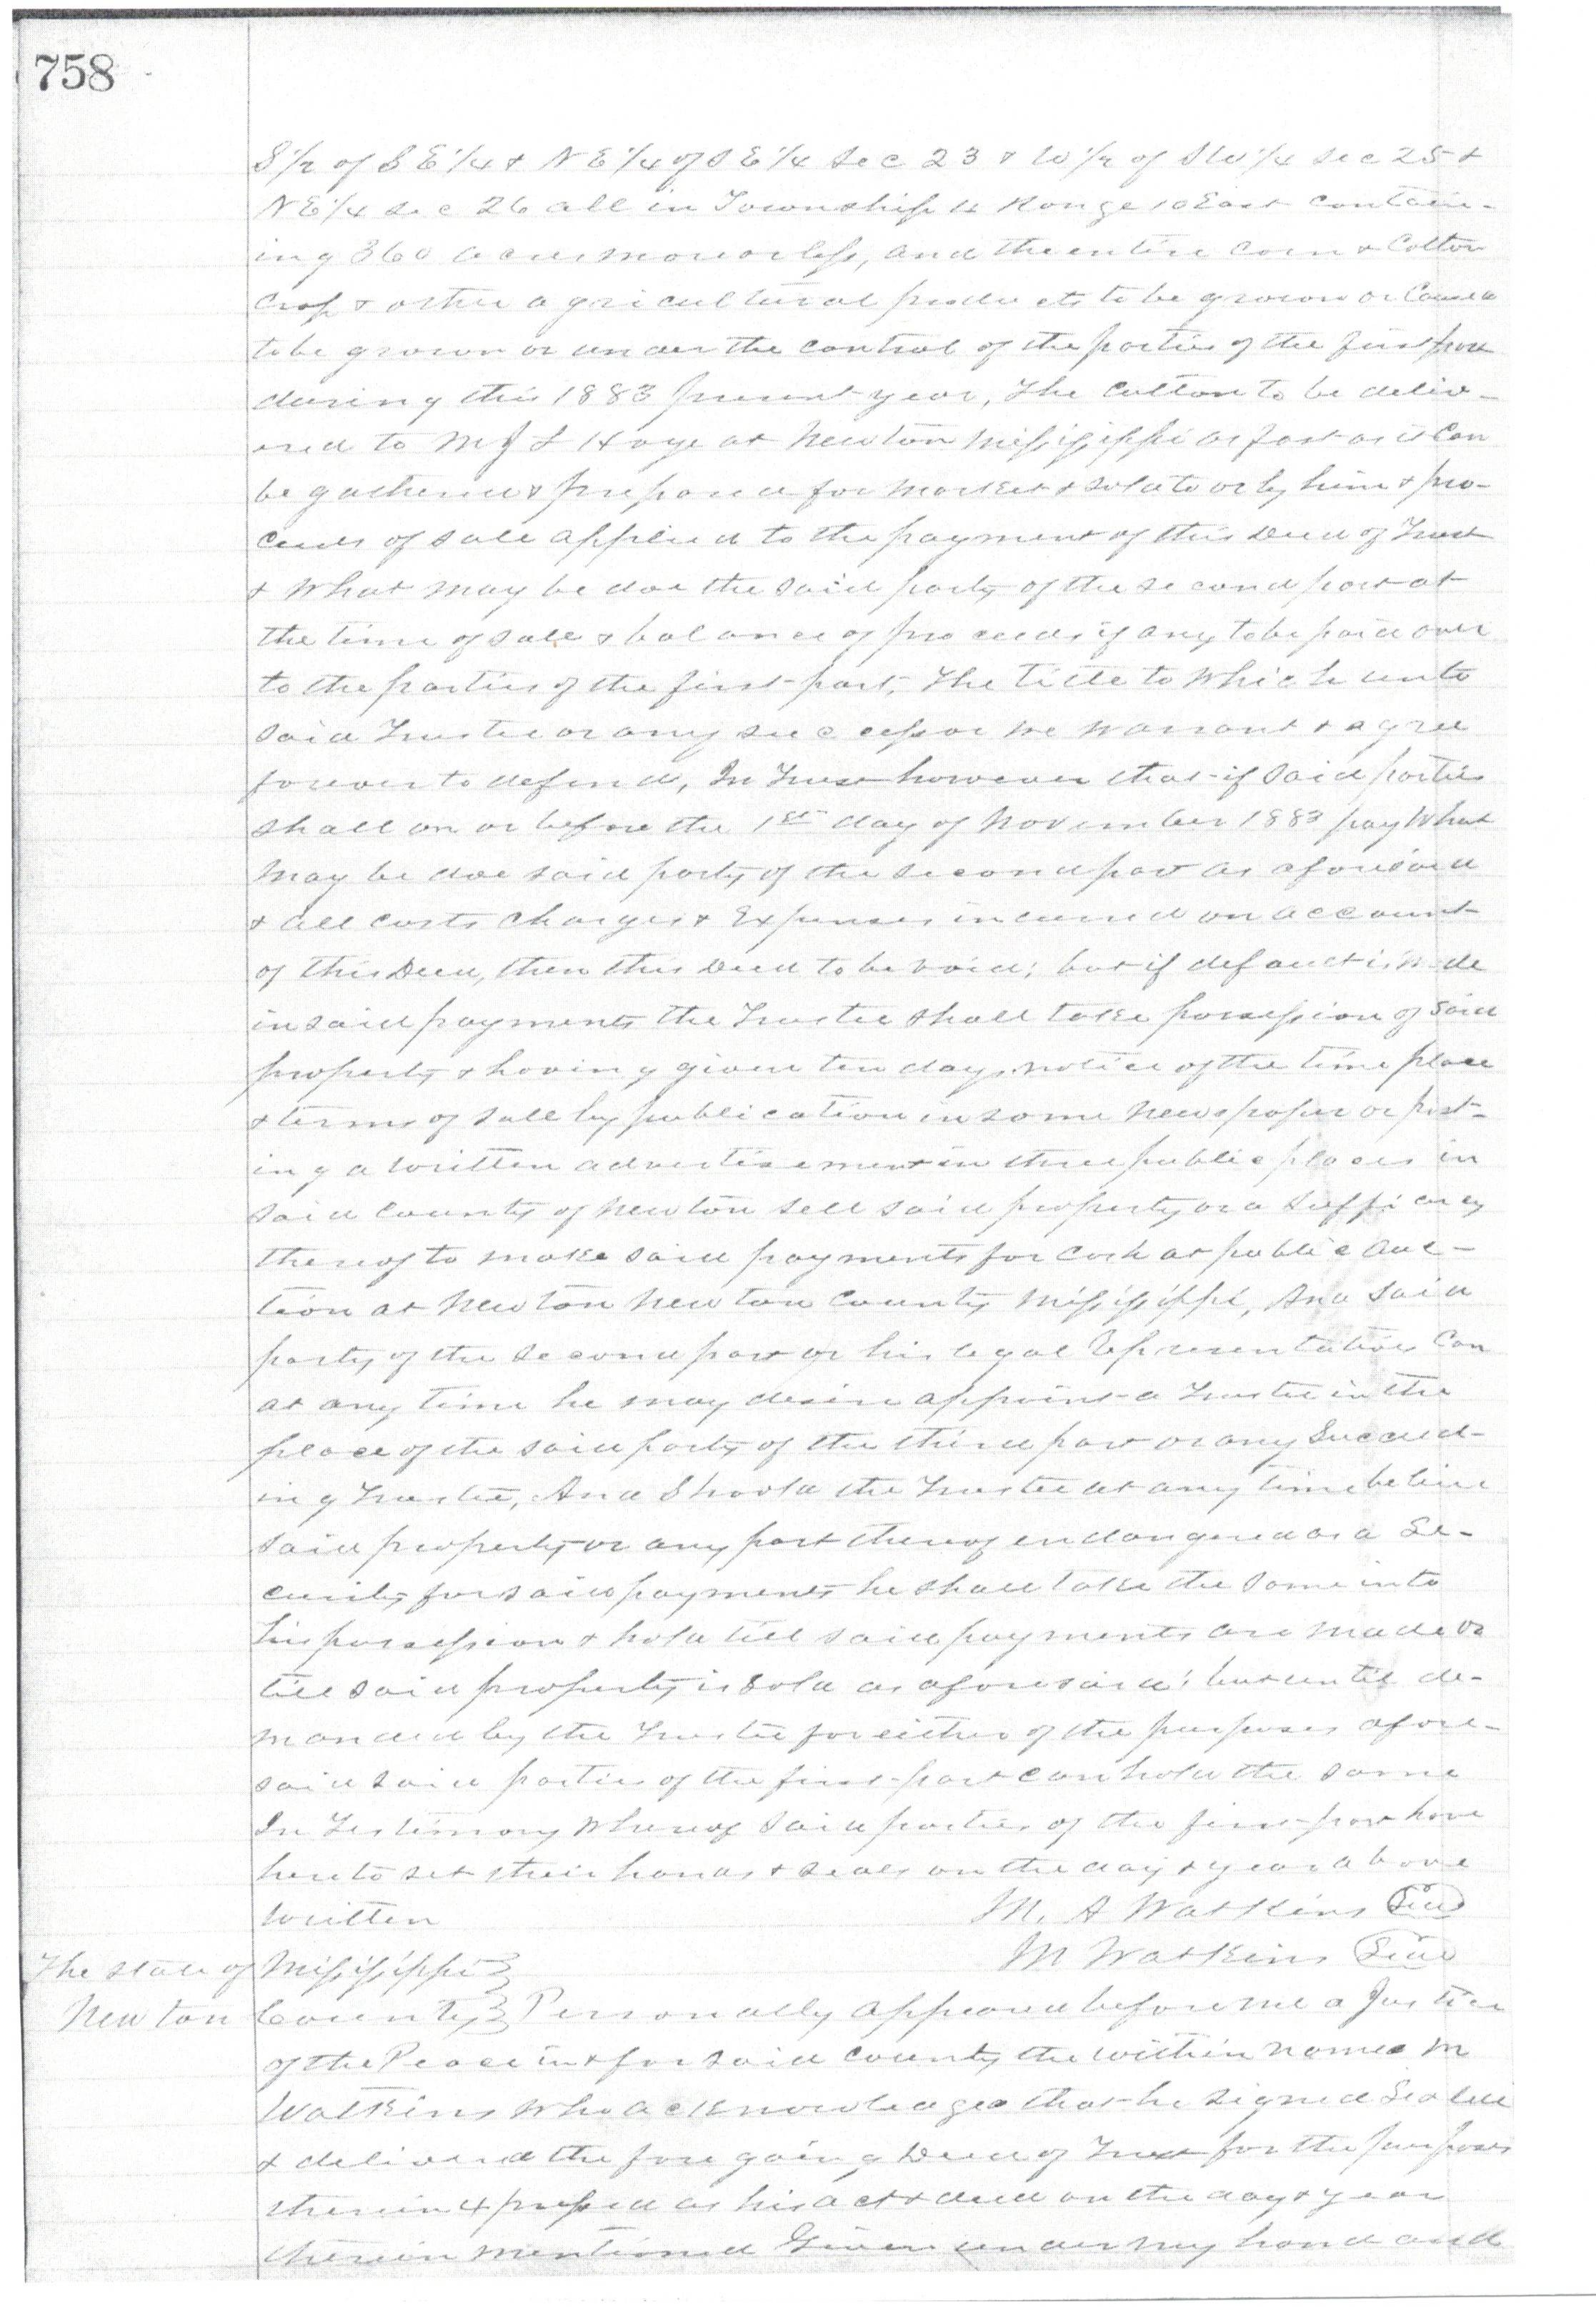 758
S 1/2 of S E 1/4 & N E 1/4 of S E 1/4 Sec 23 & W 1/2 of S W 1/4 Sec 25 &
N E 1/4 Sec 26 all in Township 4 Range 10 East contain-
ing 360 acres more or less, and the entire corn & Cotton
Crop & other agricultural products to be grown or caused
to be grown or under the control of the parties of the first part
during this 1883 present year, The cotton to be deliv-
ered to M J L Hoye at Newton Mississippi as fast as it can
be gathered & prepared for market & sold to or by him & pro-
ceeds of sale applied to the payment of this Deed of Trust
& what may be due the said party of the second part at
the time of sale & balance of proceeds if any to be paid over
to the parties of the first part, The title to which unto
said Trustee or any successor we warrant & agree
forever to defend, In Trust however that if said parties
shall on or before the 1st day of November 1883 pay what
may be due said party of the second part as aforesaid
& all costs charges & Expenses incurred on account
of this Deed, then this Deed to be void; but if default is made
in said payments the Trustee shall take possession of said
property & having given ten days notice of the time place
& terms of sale by publication in some newspaper or post-
ing a written advertisement in three public places in
said county of Newton sell said property or a sufficiency
thereof to make said payments for cash at public auc-
tion at Newton Newton County Mississippi, And said
party of the second part or his legal Representatives can
at any time he may desire appoint a Trustee in the
place of the said party of the third part or any Succeed-
ing Trustee, And Should the Trustee at any time believe
said property or any part thereof endangered as a Se-
curity for said payments he shall take the same into
his possession & hold till said payments are made or
till said property is Sold as aforesaid; but until de-
manded by the Trustee for either of the purposes afore-
said said parties of the first part can hold the same
In Testimony Whereof said parties of the first part have
hereto set their hands & seals on the day & year above
written M. A Watkins Seal
M Watkins Seal
The State of Mississippi
Newton County Personally appeared before me a Justice
of the Peace in & for said county the within named M
Watkins who acknowledged that he signed Sealed
& delivered the foregoing Deed of Trust for the purposes
therein Expressed as his act & deed on the day & year
therein mentioned Given under my hand and